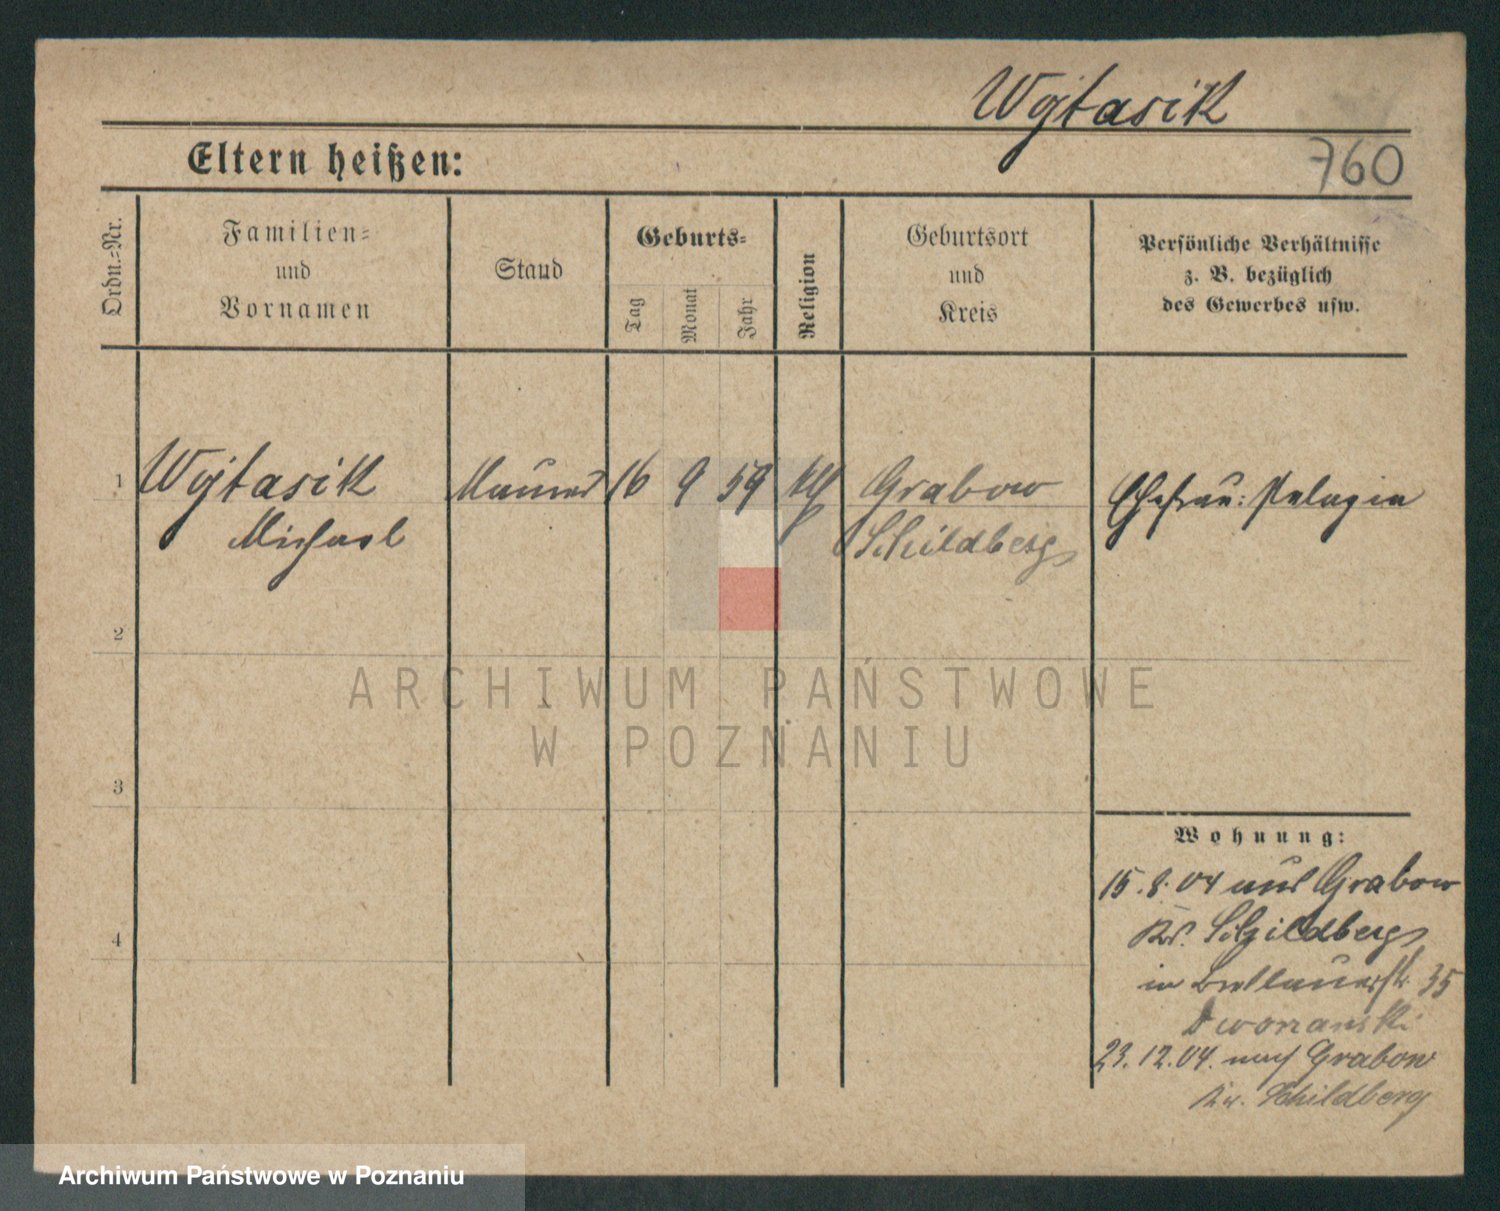 Wojtasik
760
Eltern heißen:
Ordn.-Nr.
Familien-
und
Vornamen
Stand
Geburts-
Tag
Monat
Jahr
Religion
Geburtsort
und
Kreis
Persönliche Verhältnisse
z. B. bezüglich
des Gewerbes usw.
1 Wojtasik Maurer 16 9 59 kth Grabow Ehefrau: Pelagia
Michael Schildberg
2
ARCHIWUM PAŃSTWOWE
W POZNANIU
3
Wohnung:
15.8.04 aus Grabow
Kr. Schildberg
4
in 35
23.12.04. nach Grabow
Kr. Schildberg
Archiwum Państwowe w Poznaniu